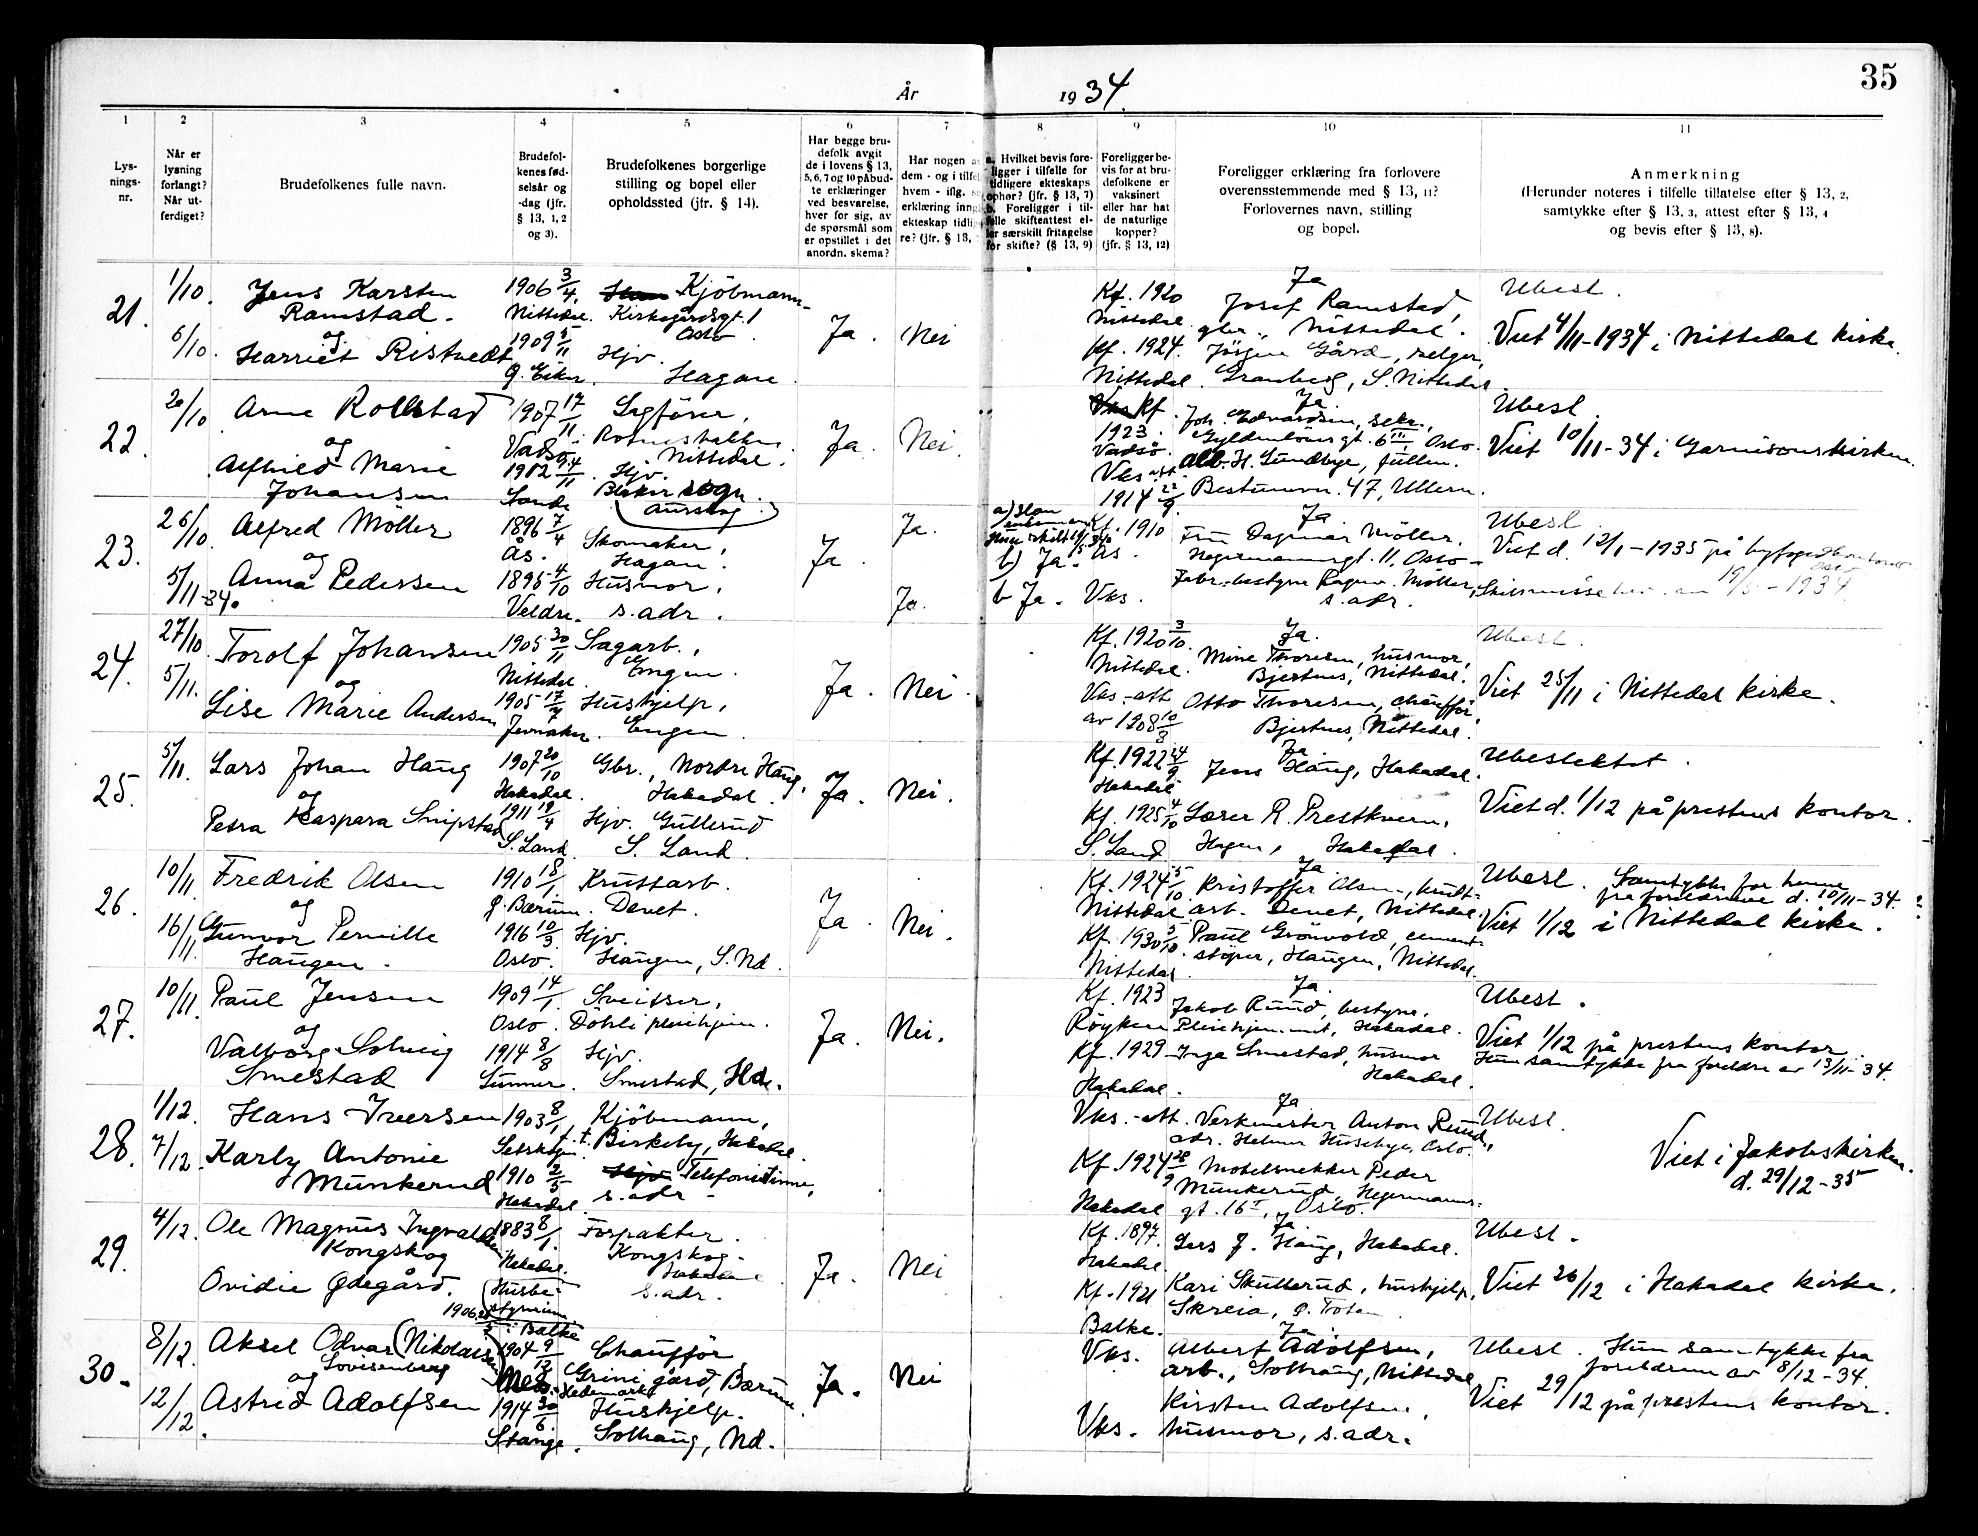 35
År 1934.
1 2 3 4 5 6 7 8 9 10 11
Lysnings-nr.
Når er lysning forlangt? Når utferdiget?
Brudefolkenes fulle navn.
Brudefolkenes fødselsår og -dag (jfr. § 13, 1, 2 og 3).
Brudefolkenes borgerlige stilling og bopel eller opholdssted (jfr. § 14).
Har begge brudefolk avgitt de i lovens § 13, 5, 6, 7 og 10 påbudte erklæringer ved besvarelse, hver for sig, av de spørsmål som er opstillet i det anordn. skema?
Har nogen a
dem - og i tilfe
hvem - iflg. s
erklæring inng
ekteskap tidlig
re? (jfr. § 13,
a. Hvilket bevis foreligger i tilfelle for tidligere ekteskaps ophør? (jfr. § 13, 7)
b. Foreligger i tilfelle skifteattest eller særskilt fritagelse for skifte? (§ 13, 9)
Foreligger bevis for at brudefolkene er vaksinert eller har hat de naturlige kopper? (jfr. § 13, 12)
Foreligger erklæring fra forlovere overensstemmende med § 13, 11? Forlovernes navn, stilling og bopel.
Anmerkning
(Herunder noteres i tilfelle tillatelse efter § 13, 2, samtykke efter § 13, 3, attest efter § 13, 4 og bevis efter § 13, 8).
21.
1/10.
6/10.
Jens Karsten
Ramstad.
og
Harriet Ristvedt
1906 3/4.
Nittedal.
1909 5/11
Ø. Eiker.
Kjöbmann
Kirkegårdsgt. 1
Oslo
Hjv.
Hagan
Ja.
Nei
Kf. 1920
Nittedal
Kf. 1924.
Nittedal.
Ja
Josef Ramstad,
gbr., Nittedal.
Jörgen Gård, selger,
Granberg, S. Nittedal.
Ubesl.
Viet 4/11-1934 i Nittedal kirke.
22.
20/10
Arne Rollstad
og
Alfhild Marie
Johansen
1907 17/11
Vadsö
1912 24/11
Sande
Sagförer,
Rotnesbakken
Nittedal.
Hjv.
Blaker sogn
(Aurskog)
Ja.
Nei.
Kf.
1923.
Vadsö
Vks. att
1914 22/9.
Ja
Joh. Edvardsen, sekr.,
Gyldenlöves gt. 6 III, Oslo.
Alb. H. Sundbye, fullm.
Bestumvn. 47, Ullern.
Ubesl.
Viet 10/11-34 i Garnisonskirken.
23.
26/10
5/11-34.
Alfred Möller
og
Anna Pedersen
1896 7/4
Ås.
1895 4/10
Veldre.
Skomaker,
Hagan.
Husmor,
s. adr.
Ja.
Ja.
Ja.
a) Han
b) Ja.
b Ja.
Kf. 1910
Ås.
Vks.
Ja
Fru Dagmar Möller,
Hegermannsgt. 11, Oslo
Fabr.-bestyrer Ragnv. Möller,
s. adr.
Ubesl.
Viet d. 12/1-1935 på byfogedkontoret
Oslo
- 1934
24.
27/10.
5/11.
Torolf Johansen
og
Lise Marie Andersen
1905 30/11
Nittedal.
1905 17/7
Jevnaker.
Sagarb.,
Engen.
Hushjelp,
Engen.
Ja.
Nei.
Kf. 1920 3/10.
Nittedal.
Vks.-att
av 1908 10/8
Ja.
Mine Thoresen, husmor,
Bjertnes, Nittedal.
Otto Thoresen, chauffør,
Bjertnes, Nittedal.
Ubesl.
Viet 25/11 i Nittedal kirke.
25.
5/11.
Lars Johan Haug
og
Petra Kaspara Snipstad
1907 20/10
Hakadal.
1911 19/4
S. Land.
Gbr., Nordre Haug,
Hakadal.
Hjv. Gullerud
S. Land.
Ja.
Nei.
Kf. 1922 24/9.
Hakadal
Kf. 1925 4/10
S. Land
Ja
Jens Haug, Hakadal.
Lærer R. Prestkvern,
Hagen, Hakadal.
Ubeslektet.
Viet d. 1/12 på prestens kontor.
26.
10/11.
16/11
Fredrik Olsen
og
Gunvor Pernille
Haugen.
1910 18/1
Ø. Bærum.
1916 10/3.
Oslo.
Kruttarb.
Denet.
Hjv.
Haugen, S. Nd.
Ja.
Nei.
Kf. 1924 5/10
Nittedal
Kf. 1930 5/10
Nittedal
Ja
Kristoffer Olsen, krutt-
arb. Denet, Nittedal.
Paul Grönvold, cement-
stöper, Haugen, Nittedal.
Ubesl. Samtykke for henne
fra foreldrene d. 10/11-34.
Viet 1/12 i Nittedal kirke.
27.
10/11.
Paul Jensen
og
Valborg Solveig
Smestad
1909 14/1
Oslo.
1914 8/8
Gunner.
Sveitser,
Döhli pleiehjem.
Hjv.
Smestad, Hdl.
Ja.
Nei.
Kf. 1923
Röyken
Kf. 1929
Hakadal.
Ja.
Jakob Ruud, bestyrer,
Pleiehjemmet, Hakadal.
Inga Smestad, husmor
Hakadal.
Ubesl.
Viet 1/12 på prestens kontor.
Hun samtykke fra foreldre av 13/11-34.
28.
1/12.
7/12.
Hans Iversen
Karly Antonie
Munkerud
1903 8/1
1910 2/5
Hakadal.
Kjöbmann,
Birkeby, Hakadal.
Telefonistinne,
s. adr.
Vks.-att.
Kf. 1924 28/9
Hakadal
Ja
Verkmester Anton Ruud,
adr. Helmer Huseby, Oslo.
Modelsnekker Peder
Munkerud, Hegermanns-
gt. 16 I, Oslo.
Ubesl.
Viet i Jakobskirken.
d. 29/12-35
29.
4/12.
Ole Magnus Ingvald
Kongskog
Ovidie Ødegård.
1883 8/1.
Hakadal.
(Husbe-
styrerinne
1906
i Balke
Forpakter.
Kongskog
Hakadal
s. adr.
Ja.
Nei
Kf. 1897.
Hakadal
Kf. 1921
Balke.
Ja
Lars J. Haug, Hakadal.
Kari Skutterud, hushjelp,
Skreia, Ø. Toten
Ubesl.
Viet 26/12 i Hakadal kirke.
30.
8/12.
12/12.
Aksel Odvar (Nikolaisen)
Lovisenberg
og
Astrid Adolfsen
1904 9/12
1914 30/6
Stange.
Chauffør
Grini gård, Bærum.
Hedemark
Hushjelp.
Solhaug, Nd.
Ja.
Nei
Vks.
Vks.
Ja
Albert Adolfsen,
arb., Solhaug, Nittedal
Kirsten Adolfsen,
husmor, s. adr.
Ubesl. Hun samtykke fra
foreldrene av 8/12-34.
Viet 29/12 på prestens kontor.